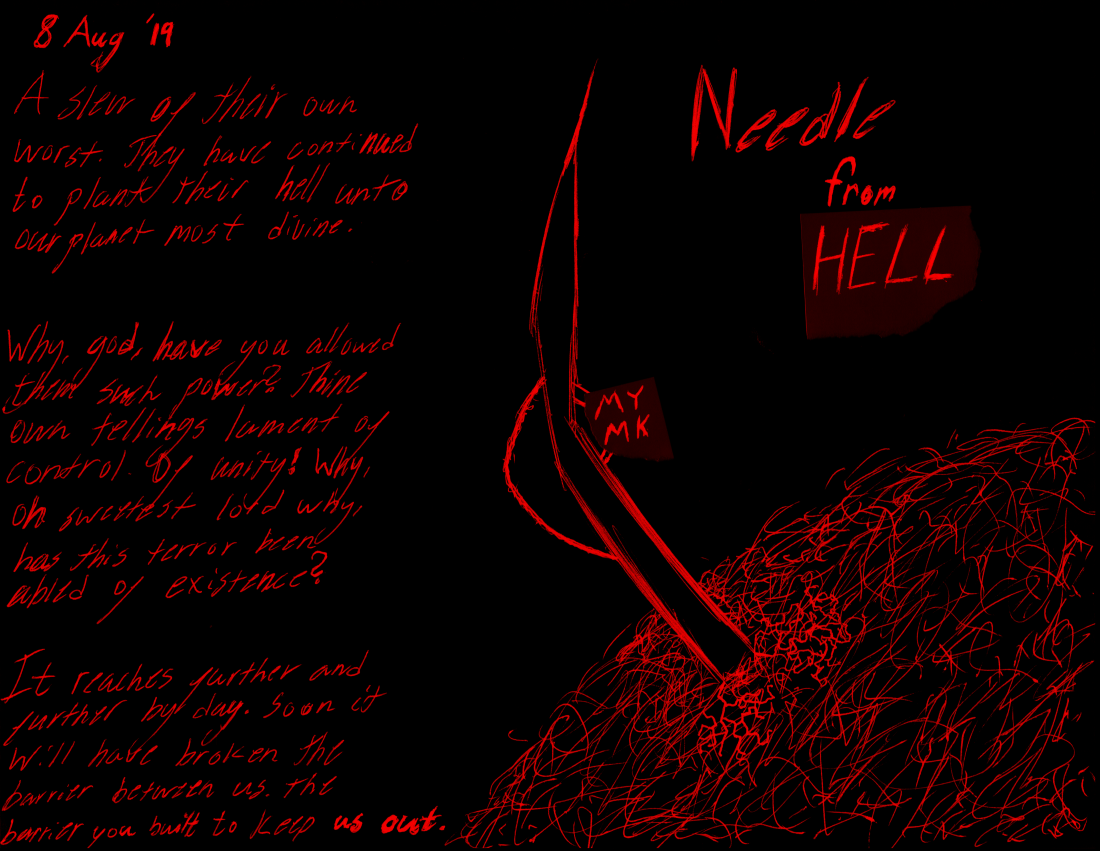 8 Aug '19
A slew of their own
worst. They have continued
to plant their hell unto
our planet most divine.
Why, god, have you allowed
them such power? Thine
own tellings lument of
control. Of unity! Why,
oh sweetest lord why,
has this terror been
abled of existence?
It reaches further and
further by day. Soon it
will have broken the
barrier between us. the
barrier you built to keep us out.
Needle
from
HELL
MY
MK